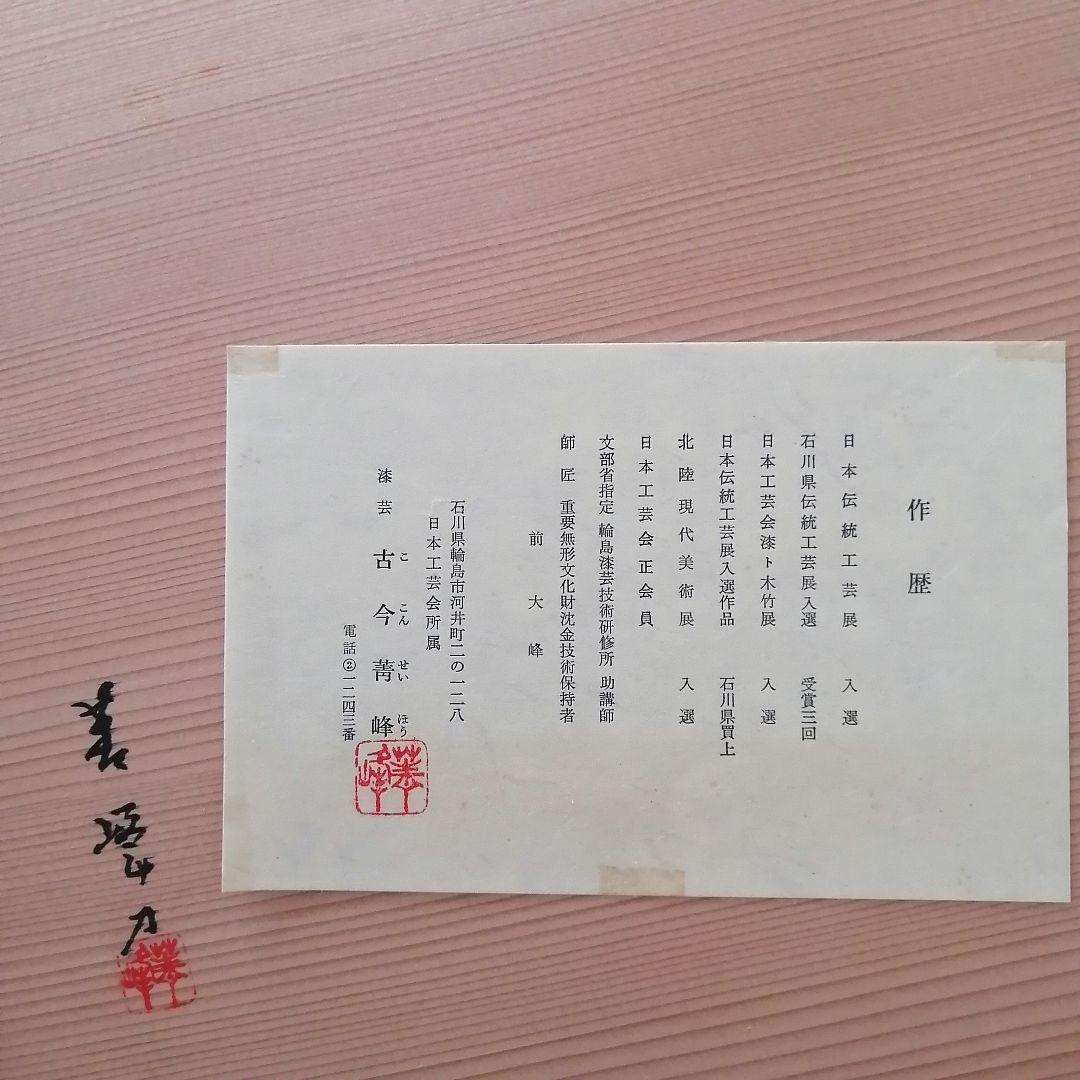 作歴
日本伝統工芸展 入選
石川県伝統工芸展入選 受賞三回
日本工芸会漆ト木竹展 入選
日本伝統工芸展入選作品 石川県買上
北陸現代美術展 入選
日本工芸会正会員
文部省指定 輪島漆芸技術研修所 助講師
師匠 重要無形文化財沈金技術保持者
前大峰
石川県輪島市河井町二の一二八
日本工芸会所属
漆芸 古今菁峰
ここんせいほう
電話②一二四三番